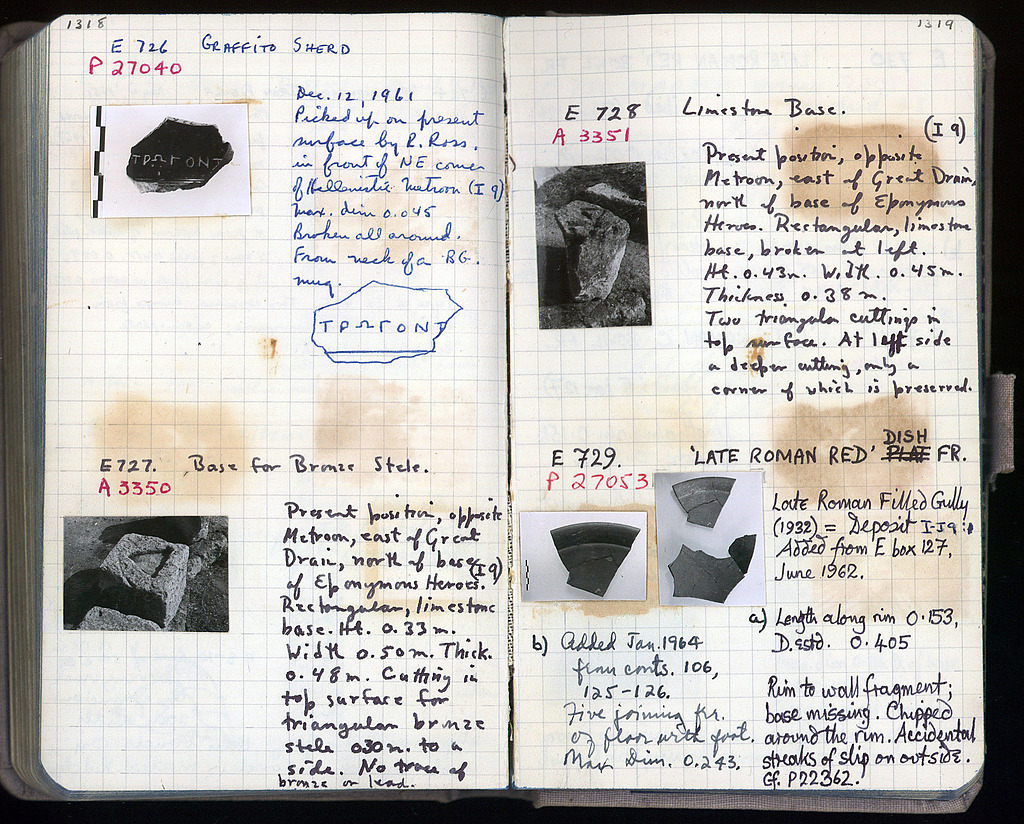 1318
E 726 GRAFFITO SHERD
P 27040
ΤΡΩΓΟΝΤ
Dec. 12, 1961
Picked up on present
surface by R. Ross.
in front of NE corner
of Hellenistic Metroon (I 9)
Max. dim 0.045
Broken all around.
From neck of a BG.
mug.
ΤΡΩΓΟΝΤ
E727. Base for Bronze Stele.
A 3350
Present position, opposite
Metroon, east of Great
Drain, north of base
of Eponymous Heroes. (I 9)
Rectangular, limestone
base. Ht. 0.33 m.
Width 0.50 m. Thick.
0.48 m. Cutting in
top surface for
triangular bronze
stele 0.30 m. to a
side. No trace of
bronze or lead.
1319
E 728 Limestone Base.
A 3351
(I 9)
Present position, opposite
Metroon, east of Great Drain,
north of base of Eponymous
Heroes. Rectangular, limestone
base, broken at left.
Ht. 0.43 m. Width. 0.45 m.
Thickness 0.38 m.
Two triangular cuttings in
top surface. At left side
a deeper cutting, only a
corner of which is preserved.
E 729. 'LATE ROMAN RED' DISH FR.
P 27053
Late Roman Filled Gully
(1932) = Deposit I-J 9:1
Added from E box 127,
June 1962.
a) Length along rim 0.153,
D. estd. 0.405
Rim to wall fragment;
base missing. Chipped
around the rim. Accidental
streaks of slip on outside.
Cf. P22362.
b) Added Jan. 1964
from conts. 106,
125-126.
Five joining frr.
of floor with foot.
Max Dim. 0.243.